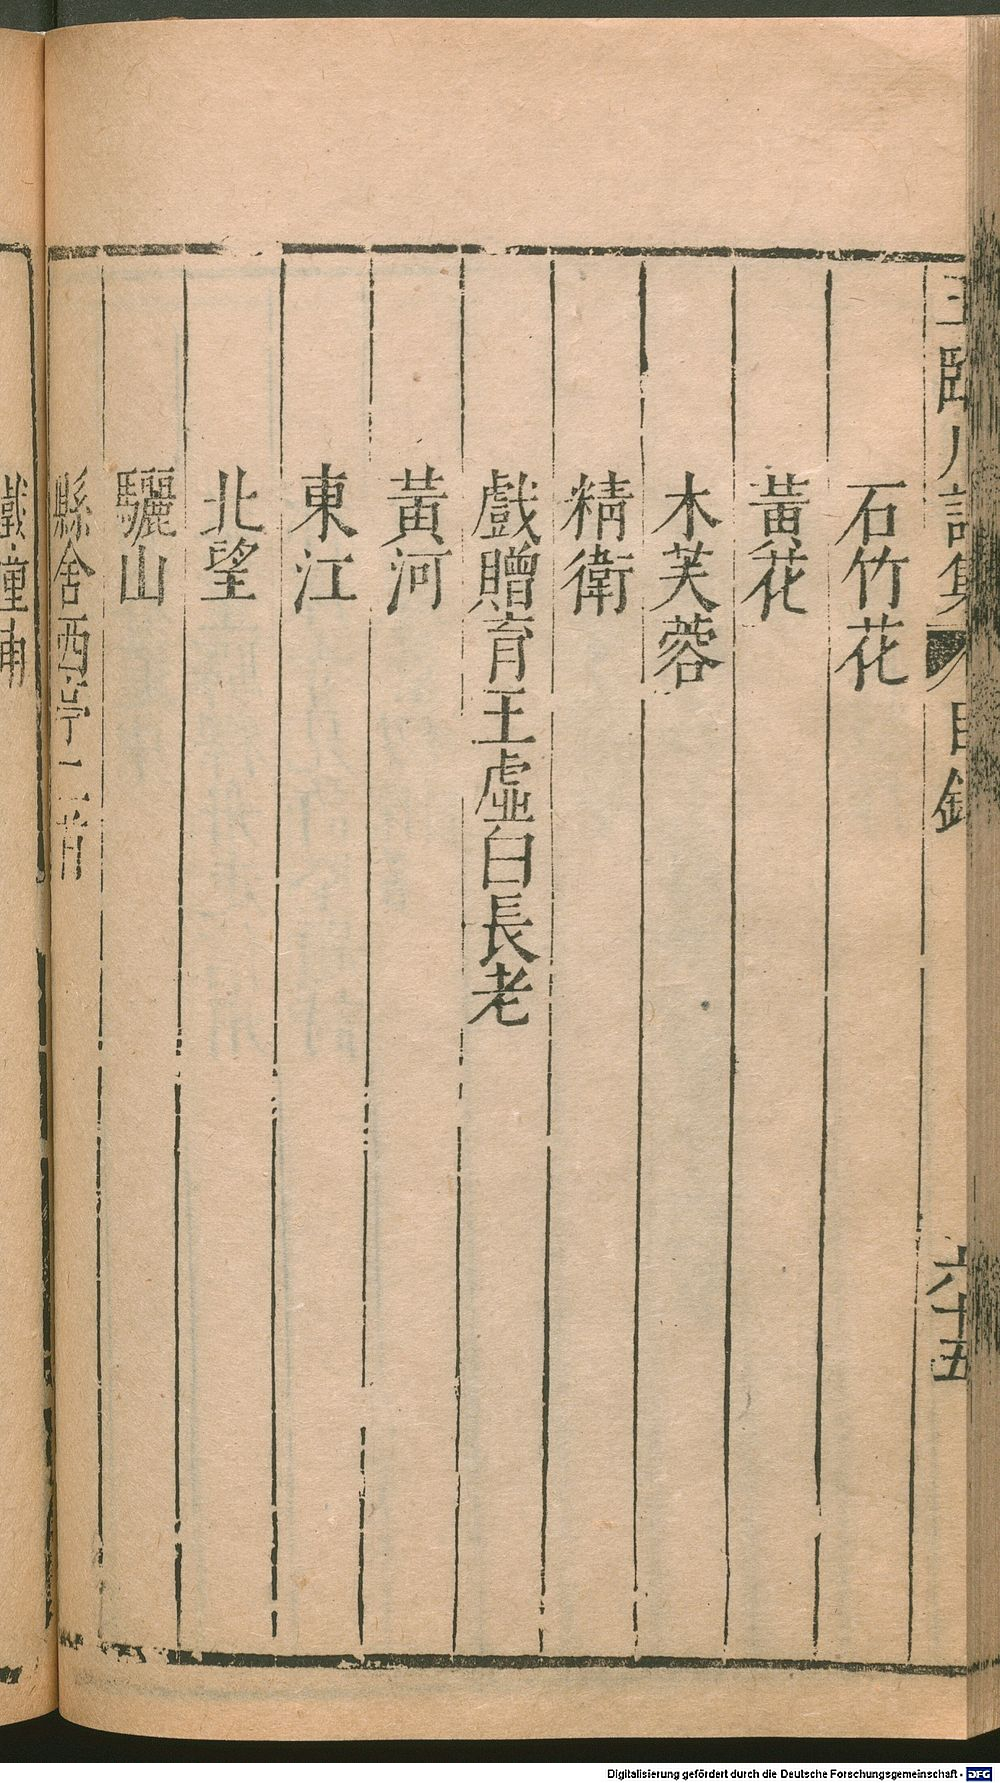 臨川詩集 目錄
六十五
石竹花
黃花
木芙蓉
精衛
戲贈育王虛白長老
黃河
東江
北望
驪山
縣舍西亭二首
鐵幢浦
Digitalisierung gefördert durch die Deutsche Forschungsgemeinschaft - DFG